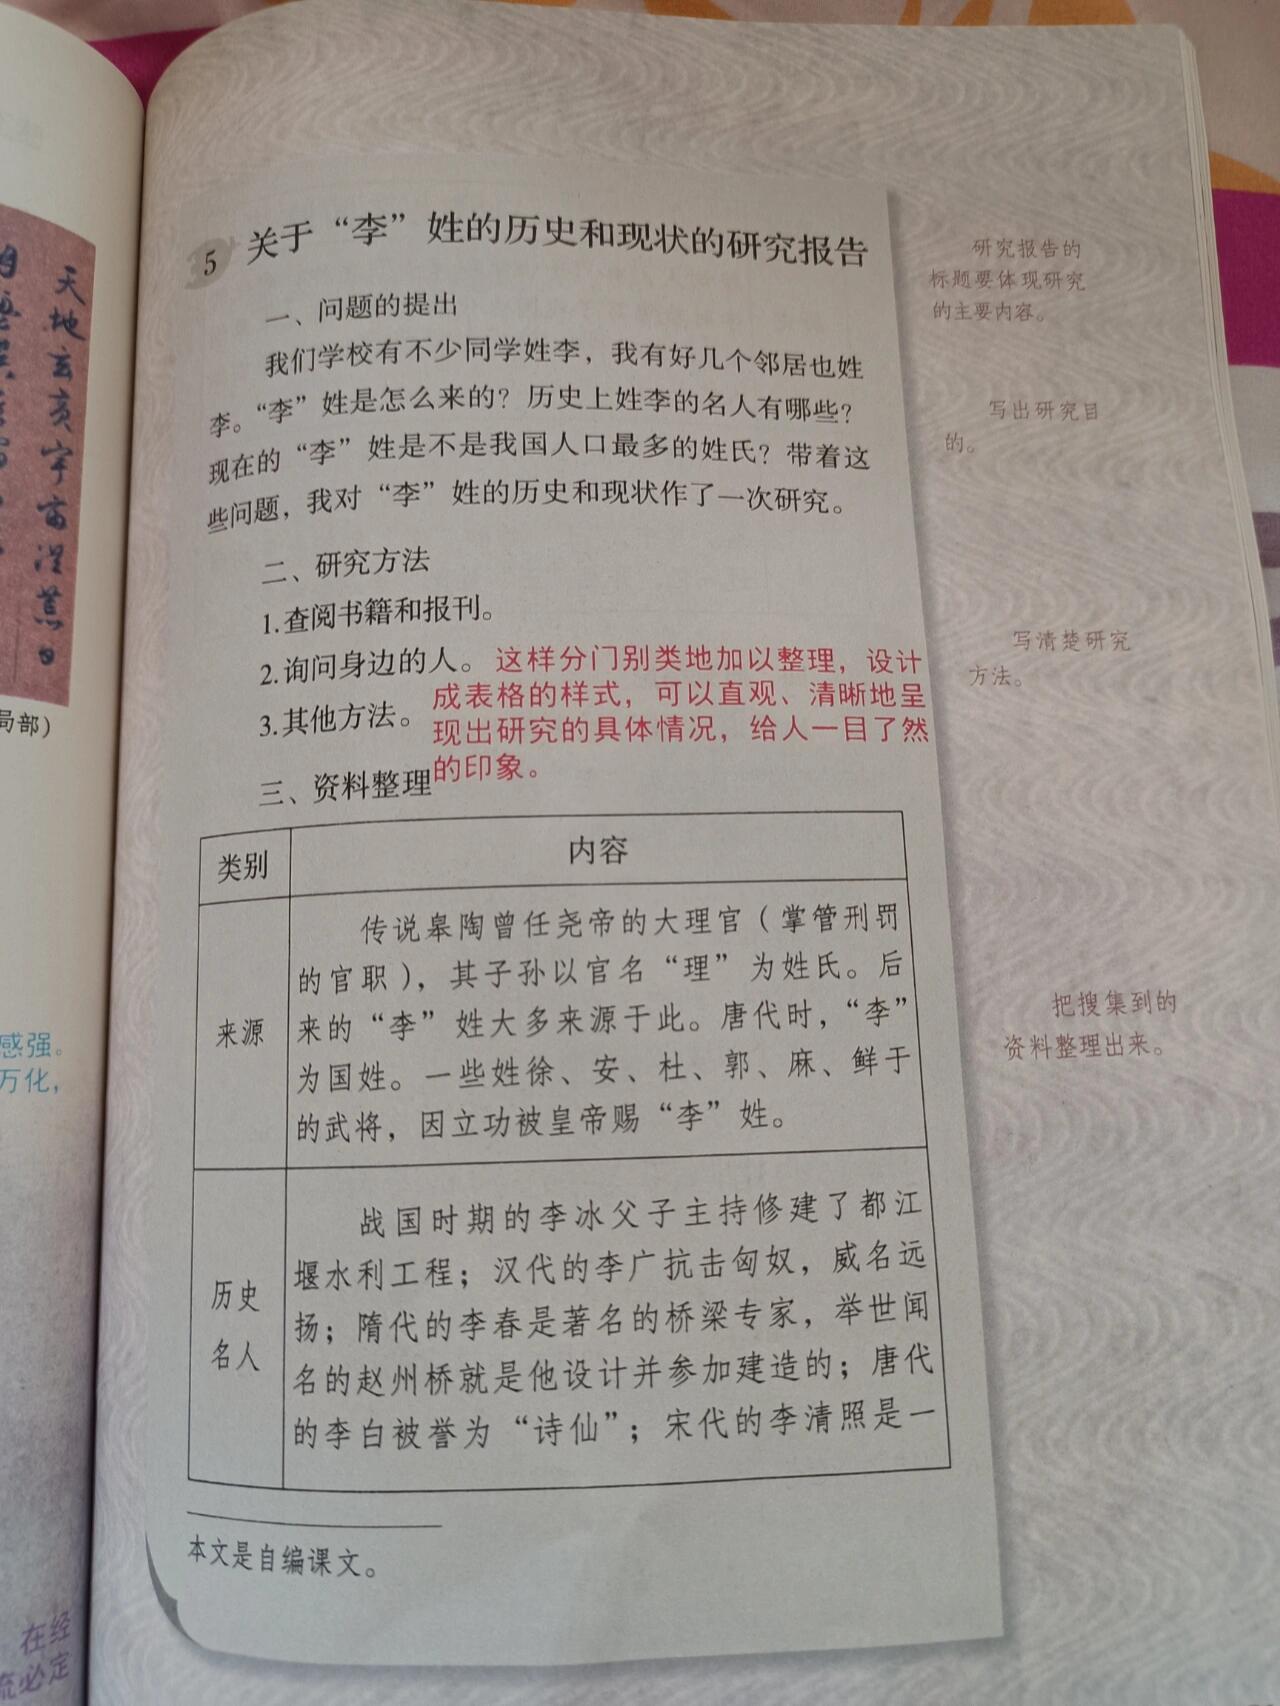 天地玄黄宇宙洪荒日
局部）
感强。
万化，
在经
流必定
5 关于“李”姓的历史和现状的研究报告
一、问题的提出
我们学校有不少同学姓李，我有好几个邻居也姓
李。“李”姓是怎么来的？历史上姓李的名人有哪些？
现在的“李”姓是不是我国人口最多的姓氏？带着这
些问题，我对“李”姓的历史和现状作了一次研究。
二、研究方法
1.查阅书籍和报刊。
2.询问身边的人。
3.其他方法。
这样分门别类地加以整理，设计
成表格的样式，可以直观、清晰地呈
现出研究的具体情况，给人一目了然
的印象。
三、资料整理
类别
内容
来源
传说皋陶曾任尧帝的大理官（掌管刑罚
的官职），其子孙以官名“理”为姓氏。后
来的“李”姓大多来源于此。唐代时，“李”
为国姓。一些姓徐、安、杜、郭、麻、鲜于
的武将，因立功被皇帝赐“李”姓。
历史
名人
战国时期的李冰父子主持修建了都江
堰水利工程；汉代的李广抗击匈奴，威名远
扬；隋代的李春是著名的桥梁专家，举世闻
名的赵州桥就是他设计并参加建造的；唐代
的李白被誉为“诗仙”；宋代的李清照是一
本文是自编课文。
研究报告的
标题要体现研究
的主要内容。
写出研究目
的。
写清楚研究
方法。
把搜集到的
资料整理出来。